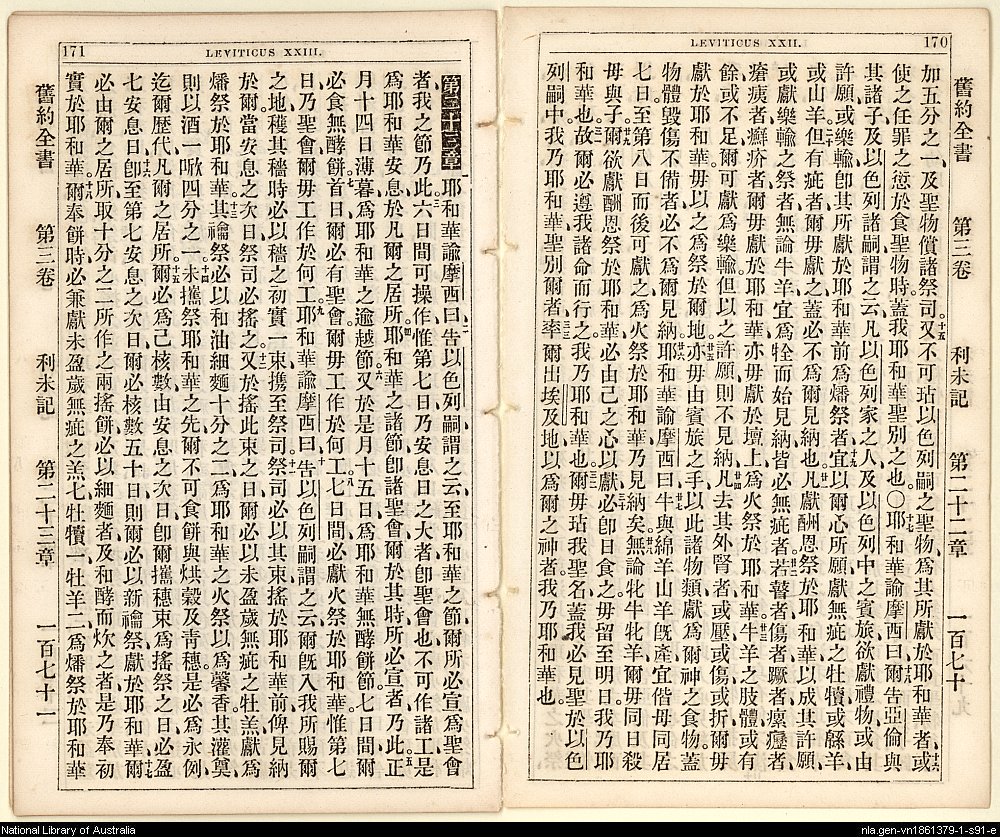 170
LEVITICUS XXII.
舊約全書 第三卷 利未記 第二十二章 一百七十
加五分之一、及聖物償諸祭司。十五又不可玷以色列嗣之聖物、爲其所獻於耶和華者、十六或
使之任罪之愆於食聖物時。蓋我耶和華聖別之也〇十七耶和華諭摩西曰、十八爾告亞倫與
其諸子及以色列諸嗣謂之云、凡以色列家之人及以色列中之賓旅、欲獻禮物、或由
許願或樂輸、卽其所獻於耶和華前爲燔祭者、十九宜以爾心所願獻無疵之牡犢或緜羊
或山羊。二十但有疵者爾毋獻之、蓋必不爲爾見納也。廿一凡獻酬恩祭於耶和華以成其許願、
或獻樂輸之祭者、無論牛羊、宜爲牷而始見納、皆必無疵者。廿二若瞽者、傷者、蹶者、瘰癧者、
瘡痍者、癬疥者、爾毋獻於耶和華、亦毋獻於壇上爲火祭於耶和華。廿三牛羊之肢體或有
餘或不足、爾可獻爲樂輸、但以之許願則不見納。廿四凡去其外腎者、或壓或傷或折、爾毋
獻於耶和華、毋以之爲祭於爾地。廿五亦毋由賓旅之手以此諸物類獻爲爾神之食物、蓋
物體毀傷不備者、必不爲爾見納。廿六耶和華諭摩西曰、廿七牛與綿羊山羊旣產宜偕毋同居
七日、至第八日而後可獻之爲火祭於耶和華、乃見納矣。廿八無論牝牛牝羊、爾毋同日殺
毋與子。廿九爾欲獻酬恩祭於耶和華、必由己之心以獻。三十必卽日食之、毋留至明日、我乃耶
和華也。三一故爾必遵我諸命而行之、我乃耶和華也。三二爾毋玷我聖名、蓋我必見聖於以色
列嗣中、我乃耶和華聖別爾者。三三率爾出埃及地以爲爾之神者、我乃耶和華也。
171
LEVITICUS XXIII.
第二十三章 一耶和華諭摩西曰、二告以色列嗣謂之云、至耶和華之節、爾所必宣爲聖會
者、我之節乃此。三六日間可操作、惟第七日乃安息日之大者、卽聖會也、不可作諸工、是
爲耶和華安息於凡爾之居所。四耶和華之諸節、卽諸聖會、爾於其時所必宣者乃此。五正
月十四日薄暮、爲耶和華之逾越節。六又於是月十五日、爲耶和華無酵餅節、七日間爾
必食無酵餅。七首日爾必有聖會、爾毋工作於何工。八七日間必獻火祭於耶和華、惟第七
日乃聖會、爾毋工作於何工。九耶和華諭摩西曰、十告以色列嗣謂之云、爾旣入我所賜爾
之地、穫其穡時、必以穡之初實一束攜至祭司。十一祭司必以其束搖於耶和華前、俾見納
於爾、當安息之次日、祭司必搖之。十二又於搖此束之日、爾必以未盈歲無疵之牡羔獻爲
燔祭於耶和華。十三其禴祭必以和油細麵十分之二、爲耶和華之火祭以爲馨香。其灌奠
則以酒一㖠四分之一。十四未攜祭耶和華之先、爾不可食餅與烘穀及青穗、是必爲永例
迄爾歷代、凡爾之居所。十五爾必爲己核數由安息之次日、卽爾攜穗束爲搖祭之日、必盈
七安息日。十六卽至第七安息之次日、爾必核數五十日、則爾必以新禴祭獻於耶和華。十七爾
必由爾之居所、取十分之二所作之兩搖餅、必以細麵者、及和酵而炊之者、是乃奉初
實於耶和華。十八爾奉餅時必兼獻未盈歲無疵之羔七、牡犢一、牡羊二、爲燔祭於耶和華
舊約全書 第三卷 利未記 第二十三章 一百七十一
National Library of Australia
nla.gen-vn1861379-1-s91-e